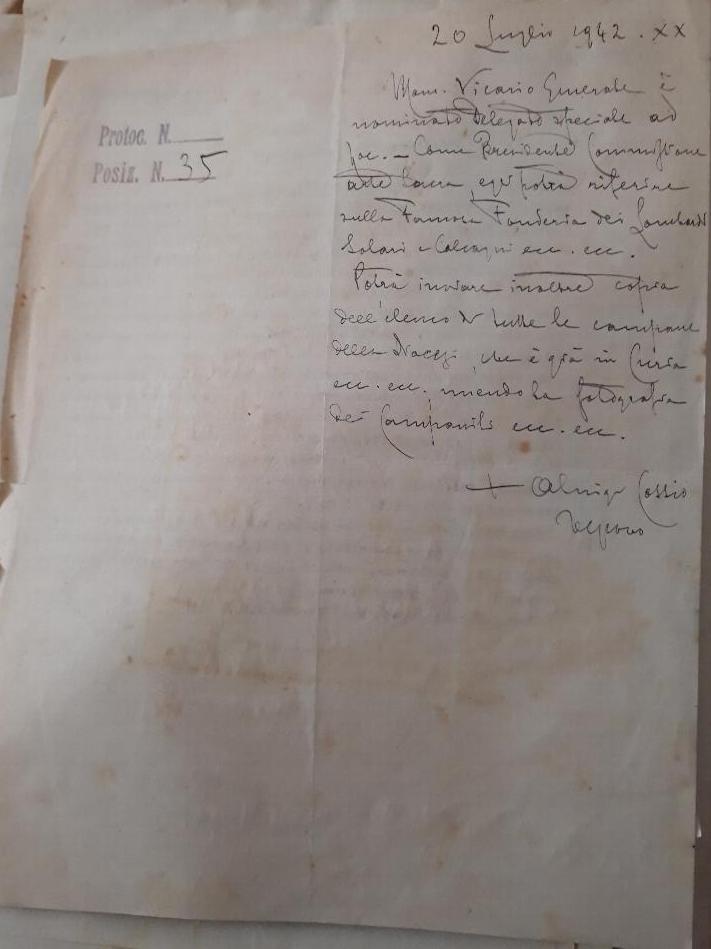 20 Luglio 1942. XX
Protoc. N.
Posiz. N. 35
Mons. Vicario Generale è
nominato Delegato speciale ad
hoc. - Come Presidente Commissione
arte Sacra, egli potrà riferire
sulla Famosa Fonderia dei Lombardi
Solari e Calcagni ecc. ecc.
Potrà inviare inoltre copia
dell'elenco di tutte le campane
della Diocesi, che è già in Curia
ecc. ecc. unendo la fotografia
dei Campanili ecc. ecc.
+ Cossio
Vescovo